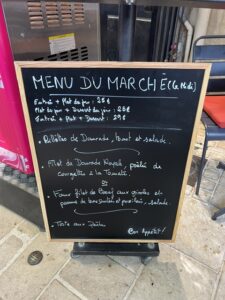 MENU DU MARCHÉ (Le Midi)
Entrée + Plat du jour : 25€
Plat du jour + Dessert du jour : 25€
Entrée + Plat + Dessert : 29€
• Rillettes de Daurade, toast et salade.
• Filet de Daurade Royale, poêlée de
courgettes à la Tomate.
ou
• Faux filet de Boeuf aux girolles et
pomme de terre persillée, salade.
• Tarte aux
Bon Appétit!